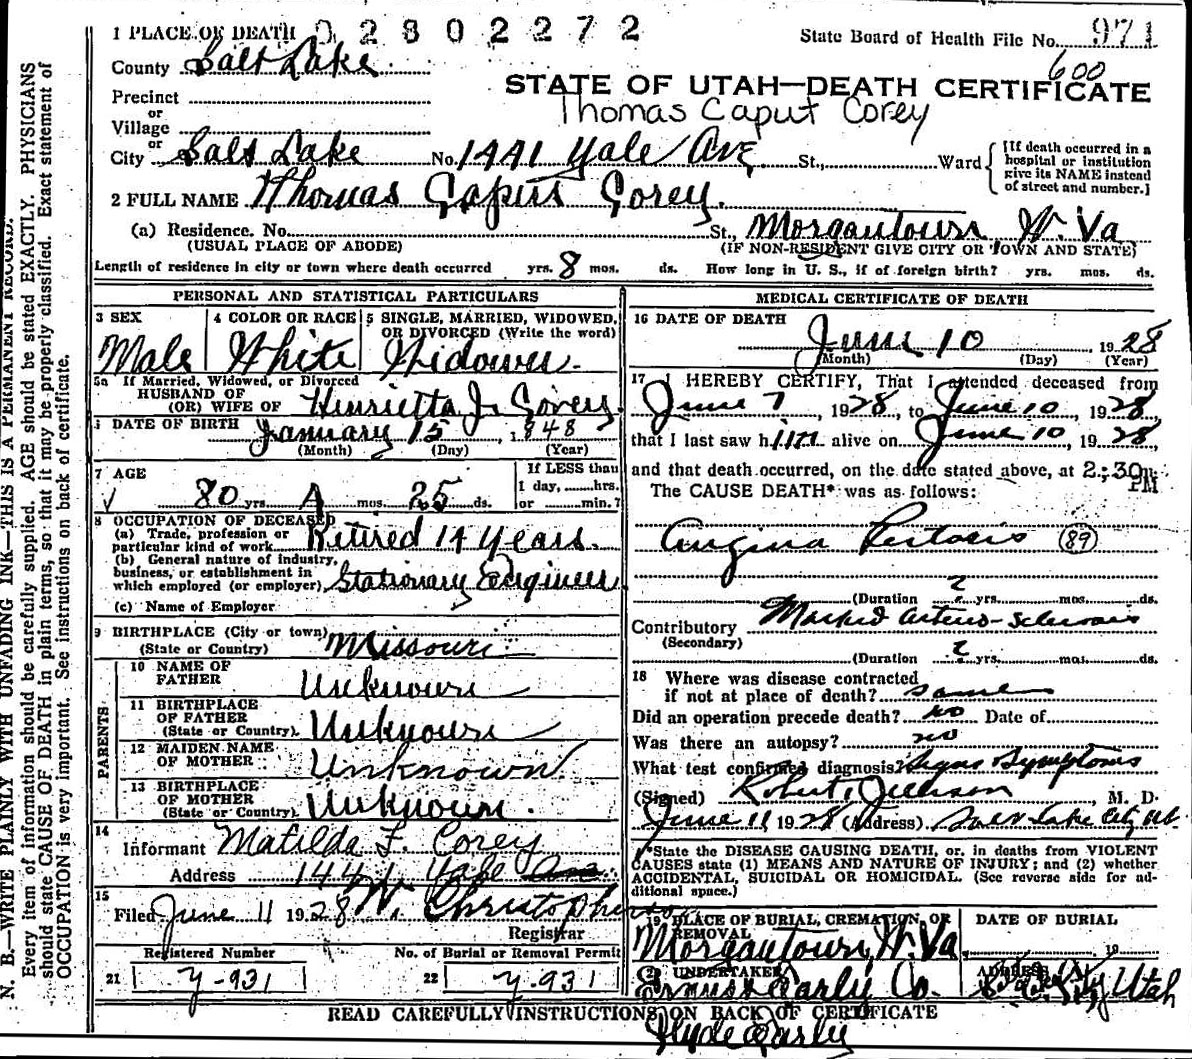 1 PLACE OF DEATH 0 2 8 0 2 2 7 2
State Board of Health File No. 971
County Salt Lake
600
STATE OF UTAH—DEATH CERTIFICATE
Precinct
or
Village
Thomas Caput Corey
or
City Salt Lake No. 1441 Yale Ave St., Ward
[If death occurred in a hospital or institution give its NAME instead of street and number.]
2 FULL NAME Thomas Caput Corey.
(a) Residence. No. St., Morgantown W. Va
(USUAL PLACE OF ABODE) (IF NON-RESIDENT GIVE CITY OR TOWN AND STATE)
Length of residence in city or town where death occurred yrs. 8 mos. ds. How long in U. S., if of foreign birth? yrs. mos. ds.
PERSONAL AND STATISTICAL PARTICULARS
3 SEX 4 COLOR OR RACE 5 SINGLE, MARRIED, WIDOWED,
OR DIVORCED (Write the word)
Male White Widower.
5a If Married, Widowed, or Divorced
HUSBAND OF
(OR) WIFE OF Henrietta J. Corey.
DATE OF BIRTH January 15, 1848
(Month) (Day) (Year)
7 AGE If LESS than
1 day, hrs.
80 yrs. 4 mos. 25 ds. or min.?
8 OCCUPATION OF DECEASED
(a) Trade, profession or
particular kind of work Retired 14 Years.
(b) General nature of industry,
business, or establishment in
which employed (or employer) Stationary Engineer
(c) Name of Employer
9 BIRTHPLACE (City or town)
(State or Country) Missouri
PARENTS
10 NAME OF
FATHER Unknown
11 BIRTHPLACE
OF FATHER
(State or Country) Unknown
12 MAIDEN NAME
OF MOTHER Unknown
13 BIRTHPLACE
OF MOTHER
(State or Country) Unknown.
14
Informant Matilda F. Corey
Address 1441 Yale Ave.
15
Filed June 11 1928 W. Christopherson
Registrar
Registered Number No. of Burial or Removal Permit
21 Y-931 22 Y-931
MEDICAL CERTIFICATE OF DEATH
16 DATE OF DEATH
June 10 1928
(Month) (Day) (Year)
17 I HEREBY CERTIFY, That I attended deceased from
June 7, 1928, to June 10, 1928
that I last saw him alive on June 10, 1928
and that death occurred, on the date stated above, at 2:30 PM
The CAUSE DEATH* was as follows:
Angina Pectoris (89)
(Duration ? yrs. mos. ds.
Contributory Marked arterio-sclerosis
(Secondary)
(Duration ? yrs. mos. ds.
18 Where was disease contracted
if not at place of death? same
Did an operation precede death? no Date of
Was there an autopsy? no
What test confirmed diagnosis? Signs Symptoms
(Signed) Robert, M. D.
June 11 1928 (Address) Salt Lake City Ut.
*State the DISEASE CAUSING DEATH, or, in deaths from VIOLENT
CAUSES state (1) MEANS AND NATURE OF INJURY; and (2) whether
ACCIDENTAL, SUICIDAL OR HOMICIDAL. (See reverse side for ad-
ditional space.)
19 PLACE OF BURIAL, CREMATION, OR
REMOVAL
DATE OF BURIAL
Morgantown, W. Va. 19
20 UNDERTAKER ADDRESS
Early Co. Utah
READ CAREFULLY INSTRUCTIONS ON BACK OF CERTIFICATE
Clyde Early
N. B.—WRITE PLAINLY WITH UNFADING INK—THIS IS A PERMANENT RECORD.
Every item of information should be carefully supplied. AGE should be stated EXACTLY. PHYSICIANS
should state CAUSE OF DEATH in plain terms, so that it may be properly classified. Exact statement of
OCCUPATION is very important. See instructions on back of certificate.